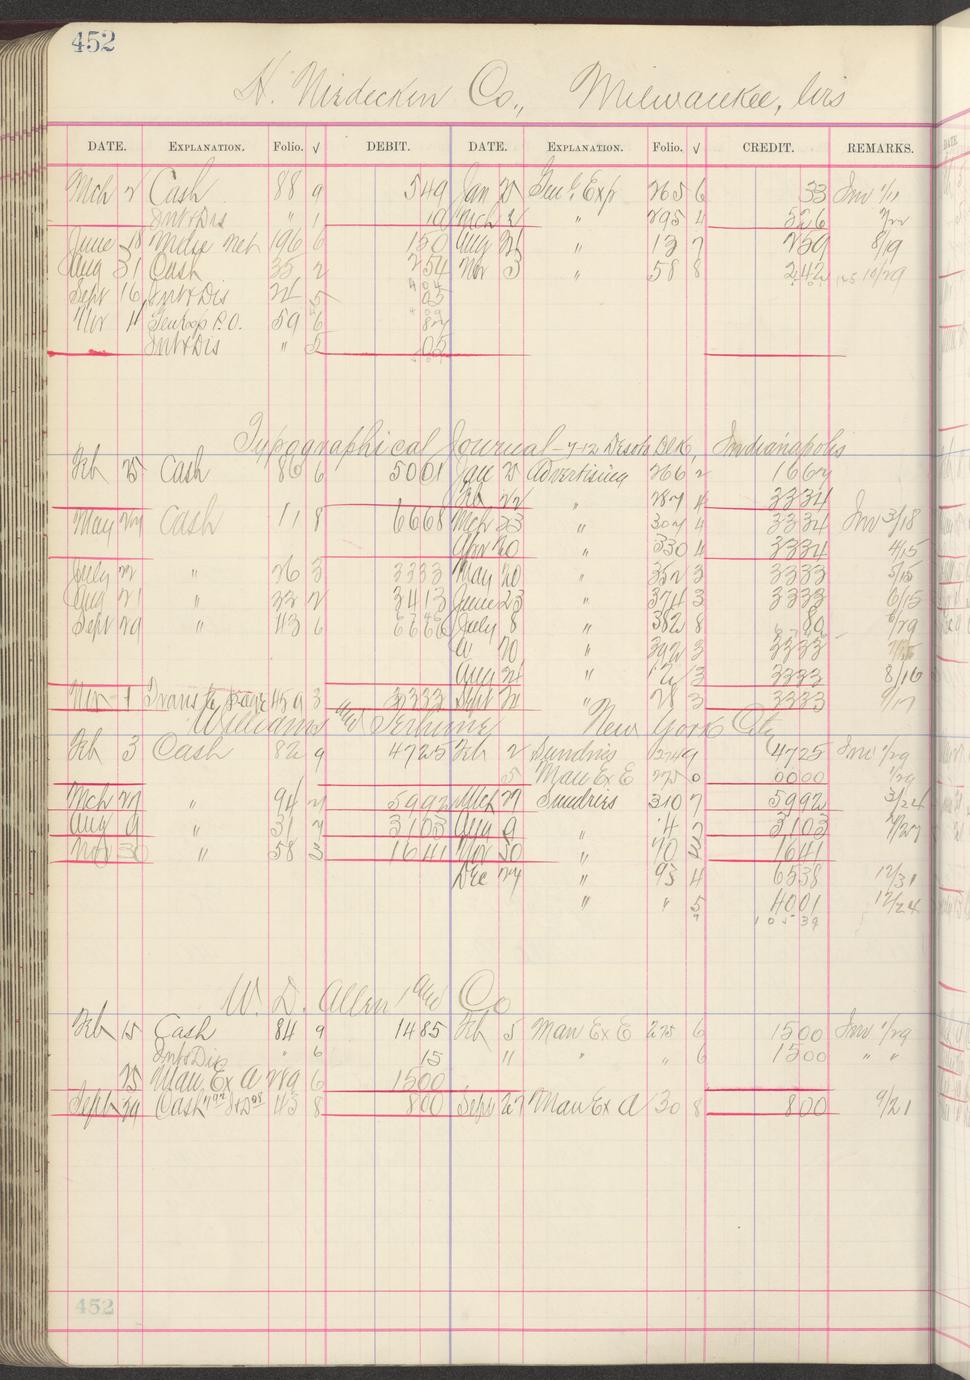 452
H. Niedecken Co., Milwaukee, Wis
DATE. EXPLANATION. Folio. √ DEBIT. DATE. EXPLANATION. Folio. √ CREDIT. REMARKS.
Mch 2 Cash 88 9 549 Jan 25 Genl Exp 265 6 33 Inv 1/11
Int & Dis " 1 10 Mch 21 " 295 4 526
June 18 Mdse Met 196 6 150 Aug 21 " 13 7 259 8/19
Aug 31 Cash 35 2 254 Nov 3 " 58 8 242 10/29
Sept 16 Int & Dis 24 5 05
Nov 11 Gen Exp P.O. 59 6 84
Int & Dis " 5 05
Typographical Journal - 7-12 DeSoto Blk, Indianapolis
Feb 25 Cash 86 6 5001 Jan 25 Advertising 266 2 1667
Feb 22 " 287 4 3334
May 24 Cash 11 8 6668 Mch 23 " 307 4 3334 Inv 3/18
Apr 20 " 330 4 3334 4/15
July 22 " 26 3 3333 May 20 " 352 3 3333 5/15
Aug 21 " 33 2 3413 June 23 " 374 3 3333 6/15
Sept 29 " 43 6 6666 July 8 " 382 8 80 6/29
20 " 392 3 3333
Aug 24 " 3 3333 8/16
Nov 1 Trans to page 459 3 3333 Sept 21 " 28 3 3333 9/17
Williams and Perhine New York City
Feb 3 Cash 82 9 4725 Feb 2 Sundries 274 9 4725 Inv 1/29
5 Man Ex E 275 0 0000 1/29
Mch 27 " 94 7 5992 Mch 27 Sundries 310 7 5992 3/24
Aug 9 " 31 7 3103 Aug 9 " 4 7 3103 7/27
Nov 30 " 58 3 1641 Nov 30 " 70 1641
Dec 24 " 93 4 6538 12/31
" " 5 4001 12/24
10539
W. D. Allen and Co
Feb 15 Cash 84 9 1485 Feb 5 Man Ex E 275 6 1500 Inv 1/29
Int & Dis " 6 15 " " " 6 1500 " "
25 Man. Ex A 289 6 1500
Sept 29 Cash 43 8 800 Sept 27 Man Ex A 30 8 800 9/21
452